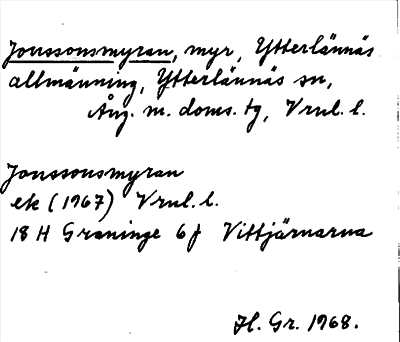 Jonssonsmyran, myr, Ytterlännäs
allmänning, Ytterlännäs sn,
Ång. m. doms. tg, Vrnl. l.
Jonssonsmyran
ek (1967) Vrnl. l.
18 H Graninge 6 f Vittjärnarna
H. Gr. 1968.